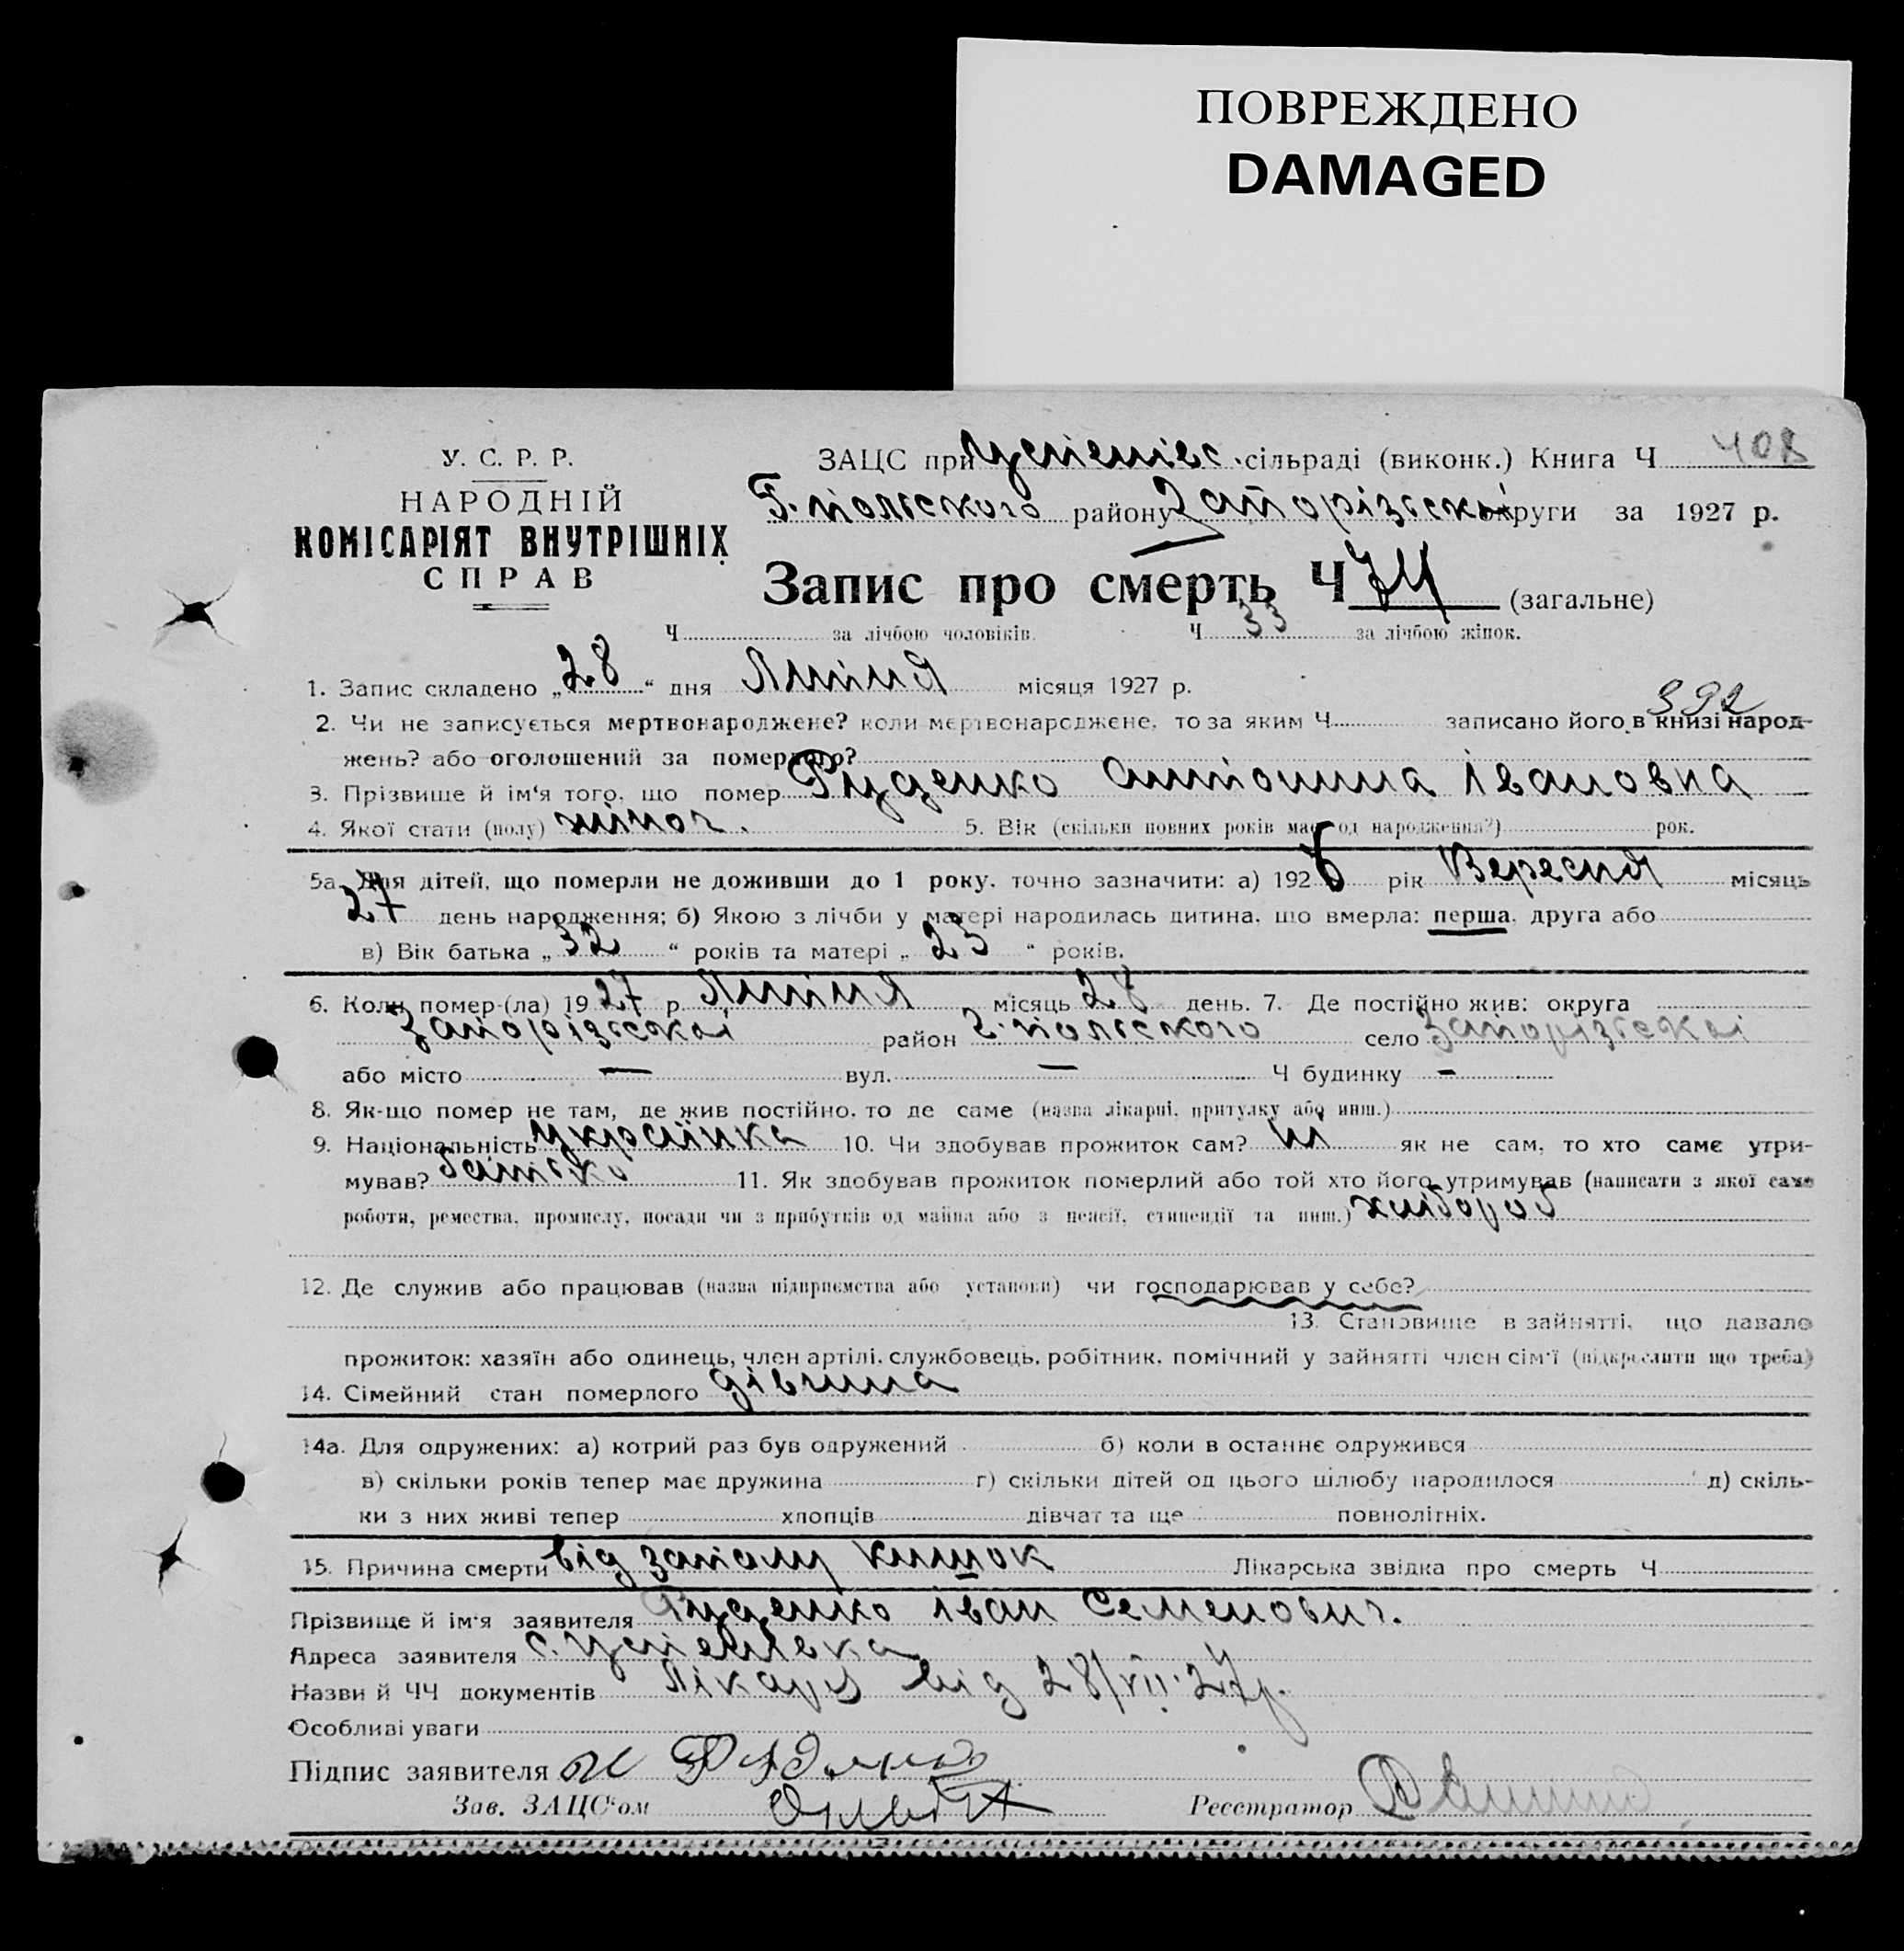 ПОВРЕЖДЕНО
DAMAGED
У. С. Р. Р.
НАРОДНІЙ
КОМІСАРІЯТ ВНУТРІШНІХ
СПРАВ
ЗАЦС при Успенівс. сільраді (виконк.) Книга Ч 408
Г.-польського району Запорізської округи за 1927 р.
Запис про смерть Ч 74 (загальне)
Ч за лічбою чоловіків. Ч 33 за лічбою жінок.
1. Запис складено „28“ дня Липня місяця 1927 р.
392
2. Чи не записується мертвонароджене? коли мертвонароджене, то за яким Ч записано його в книзі народ-
жень? або оголошений за померлого?
3. Прізвище й ім‘я того, що помер Руденко Антонина Івановна
4. Якої стати (полу) жіноч. 5. Вік (скільки повних років має од народження?) рок.
5а. Для дітей, що померли не доживши до 1 року, точно зазначити: а) 1926 рік Вересня місяць
27 день народження; б) Якою з лічби у матері народилась дитина, що вмерла: перша, друга або
в) Вік батька „32“ років та матері „23“ років.
6. Коли помер-(ла) 1927 р. Липня місяць 28 день. 7. Де постійно жив: округа
Запорізської район Г.-польського село Запорізської
або місто — вул. — Ч будинку -
8. Як-що помер не там, де жив постійно, то де саме (назва лікарні, притулку або инш.)
9. Національність українка 10. Чи здобував прожиток сам? ні як не сам, то хто саме утри-
мував? батько 11. Як здобував прожиток померлий або той хто його утримував (написати з якої саме
роботи, ремества, промислу, посади чи з прибутків од майна або з пенсії, стипендії та инш.) хлібороб
12. Де служив або працював (назва підприємства або установи) чи господарював у себе?
13. Становище в зайнятті, що давало
прожиток: хазяїн або одинець, член артілі, службовець, робітник, помічний у зайнятті член сім‘ї (підкреслити що треба)
14. Сімейний стан померлого дівчина
14а. Для одружених: а) котрий раз був одружений б) коли в останнє одружився
в) скільки років тепер має дружина г) скільки дітей од цього шлюбу народилося д) скіль-
ки з них живі тепер хлопців дівчат та ще повнолітніх.
15. Причина смерти від запалу кишок Лікарська звідка про смерть Ч
Прізвище й ім‘я заявителя Руденко Іван Семенович.
Адреса заявителя с. Успенівка
Назви й ЧЧ документів Лікаря від 28/VII.27р.
Особливі уваги
Підпис заявителя И Руденко
Зав. ЗАЦС‘ом
Реєстратор